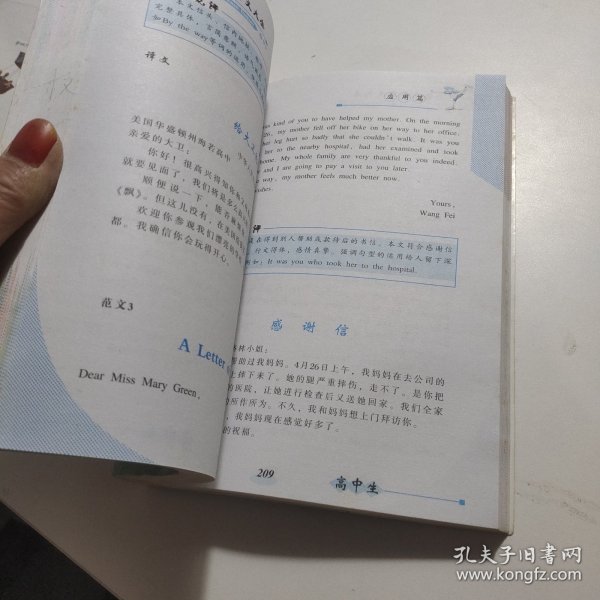 本文信头、信内地址、
完整具体,言简意赅,
如By the way等词的运用,
译文
给大
美国华盛顿州海名高中
亲爱的大卫:
你好!很高兴得知你
就要见面了,我们将是多么
顺便说一下,能否
《飘》。但这儿没有,在美国
欢迎你参观我们漂亮的
都。我确信你会玩得开心。
范文3
A Letter
Dear Miss Mary Green,
应用篇
kind of you to have helped my mother. On the morning
26, my mother fell off her bike on her way to her office;
leg hurt so badly that she couldn't walk. It was you
her to the nearby hospital, had her examined and took
ome. My whole family are very thankful to you indeed.
and I are going to pay a visit to you later.
way, my mother feels much better now.
ishes.
Yours,
Wang Fei
评
在得到别人帮助或款待后的书信。本文符合感谢信
行文得体,感情真挚。强调句型的运用给人留下深
如:It was you who took her to the hospital.
感谢信
林小姐:
帮助过我妈妈。4月26日上午,我妈妈在去公司的
上摔下来了。她的腿严重摔伤,走不了。是你把
的医院,让她进行检查后又送她回家。我们全家
的所作所为。不久,我和妈妈想上门拜访你。
我妈妈现在感觉好多了。
的祝福。
209
高中生
孔夫子旧书网
www.kongfz.com